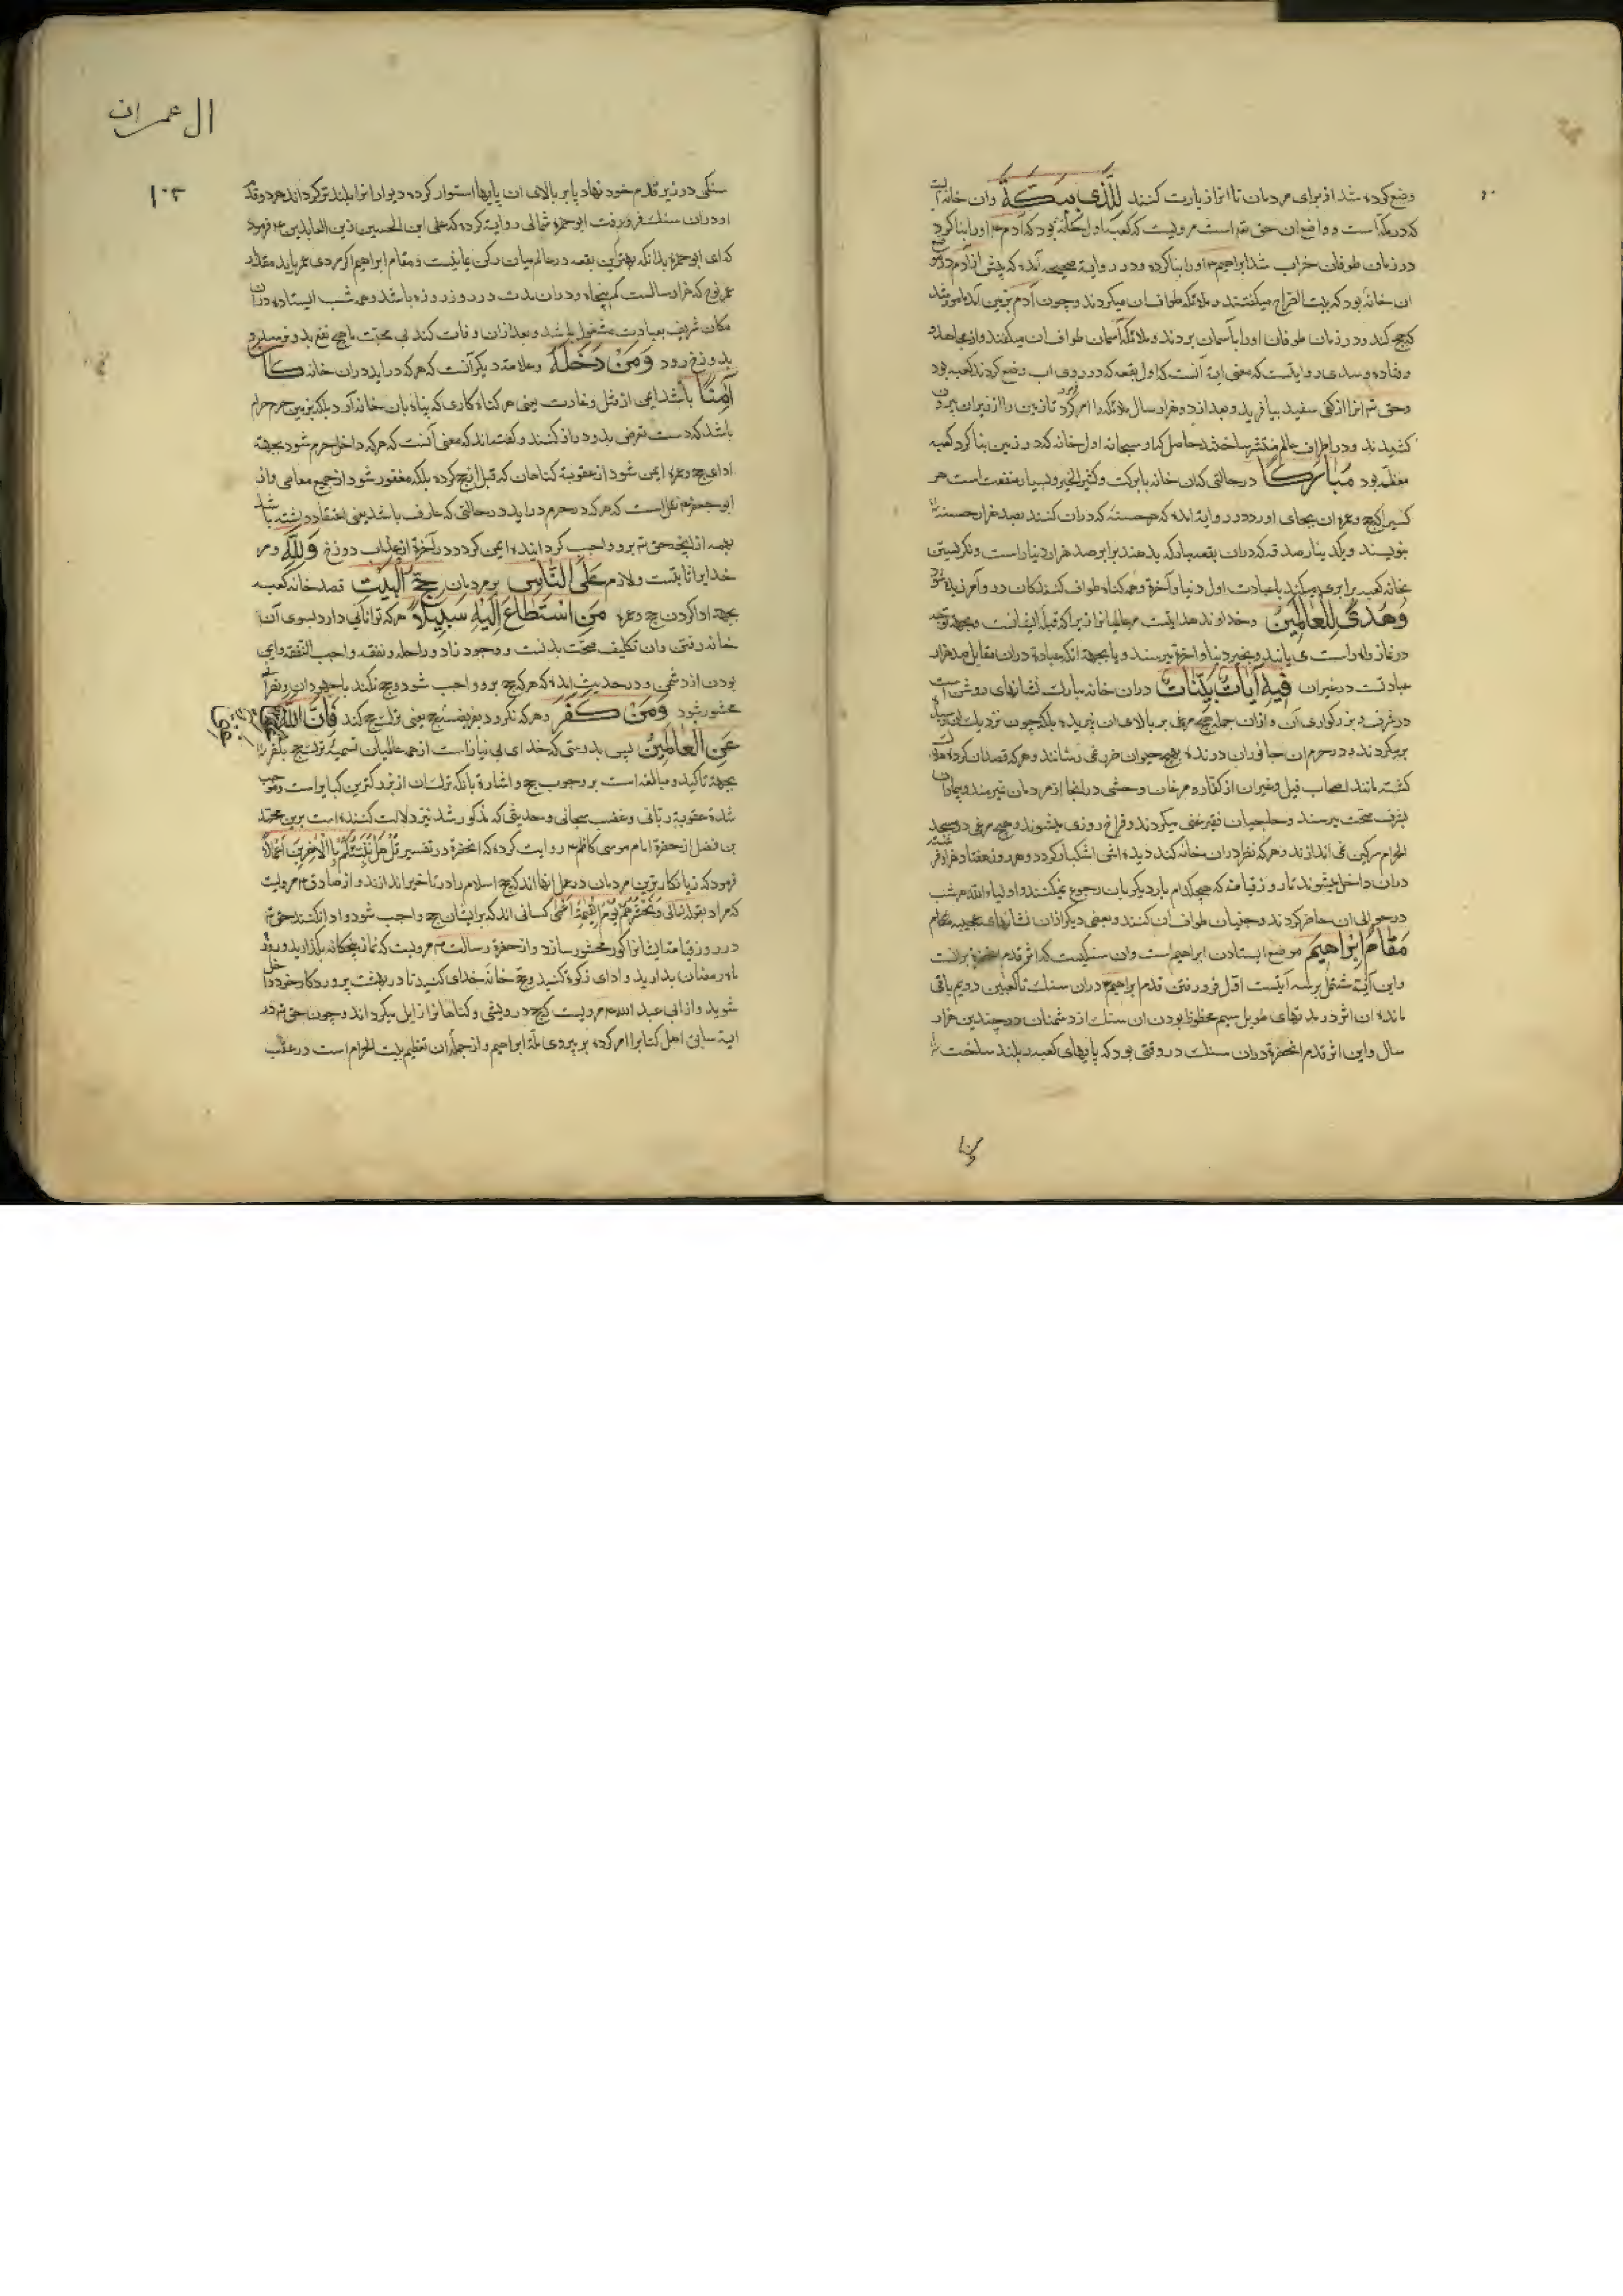 وضع کرده شد از برای مردمان تا انرا زیارت کنند لَلَّذی بِبَکَّةَ وان خانه ایست
که در مکه است و واضع ان حق تم است مرویست که کعبه اول خانه بود که آدم ع م اورا بنا کرد
در زمان طوفان خراب شد ابراهیم ع م اورا بنا کرد و در روایة صحیحه آمده که پیش از آدم در موضع
ان خانه بود که بیت الضراح میگفتند و ملائکه طواف ان میکردند و چون آدم بزمین آمد مامور شد
که حج کند و در زمان طوفان اورا بآسمان بردند و ملائکه آسمان طواف ان میکنند و از مجاهد
و قتاده و سدی روایتست که معنی ایه آنست که اول بقعه که در روی اب وضع کردند کعبه بود
وحق تم انرا از کفی سفید بیافرید و بعد از دو هزار سال ملائکه را امر کرد تا زمین را از زیر ان بیرون
کشیدند و در اطراف عالم منتشر ساختند حاصل که او سبحانه اول خانه که در زمین بنا کرد کعبه
معظمه بود مُبارَکًا در حالتی که ان خانه بابرکت و کثیر الخیر و بسیار منفعت است هر
کسیرا که حج و عمره ان بجای اورد و در روایة امده که هر حسنه که دران کنند بصد هزار حسنه
بنویسند و یکدینار صدقه که دران بقعه مبارکه بدهند برابر صد هزار دینار است و نکریستن
بخانه کعبه برابری میکند با عبادت اول دنیا و آخرة و همه کناه طواف کنندکان درو آمرزیده شود
وَهُدًی لِلْعالَمینَ وخداوند هدایتست مر عالمیانرا زیرا که قبله ایشانست و بجهة توجه
در نماز راه راست می یابند و بخیر دنیا و اخرة میرسند و یا بجهة انکه عبادة دران مقابل صد هزار
عبادتست در غیر ان فیهِ آیاتٌ بَیِّناتٌ دران خانه مبارک نشانهای روشن است
در شرف و بزرکواری آن و ازان جمله هیچ مرغی بر بالای ان نپریده بلکه چون نزدیک ان رسد
برمیکردند و در حرم ان جانوران درنده بهیچ حیوان ضرر نمی رسانند و هر که قصد ان کرده هلاک
کشته مانند اصحاب فیل و غیر ان از کفار و مرغان وحشی در انجا از مردمان نمیرمند و بیماران
بشرف صحت میرسند و حاجیان فقیر غنی میکردند و فراخ روزی میشوند و هیچ مرغی در مسجد
الحرام سرکین نمی اندازند و هر که نظر دران خانه کند دیده اش اشکبار کردد و هر روز هفتاد هزار فرشته
دران داخل میشوند تا روز قیامة که هیچکدام بار دیکر بان رجوع نمیکنند و اولیاء الله هر شب
در حوالی ان حاضر کردند و جنیان طواف ان کنند و بعضی دیکر ازان نشانهای عجیبه
مَقامُ اِبْراهیمَ موضع ایستادن ابراهیم است وان سنکیست که اثر قدم انحضرة برانست
واین آیة مشتمل بر سه آیتست اول فرو رفتن قدم ابراهیم دران سنک تا کعبین دویم باقی
ماندن ان اثر در مدتهای طویل سیم محفوظ بودن ان سنک از دشمنان در چندین هزار
سال واین اثر قدم انحضرة دران سنک در وقتی بود که پایهای کعبه را بلند ساخت
ال عمران
۱۰۳
سنکی در زیر قدم خود نهاد پا بر بالای ان پایها استوار کرده دیوار انرا بلند تر کرداند هر دو قدم
او دران سنک فرو رفت ابو حمزه ثمالی روایة کرده که علی ابن الحسین زین العابدین ع م فرمود
که ای ابو حمزه بدانکه بهترین بقعه در عالم میان رکن یمانیست و مقام ابراهیم اکر مردی عمر یابد مقدار
عمر نوح که هزار سالست کم پنجاه و دران مدت در روز روزه باشد و همه شب ایستاده دران
مکان شریف بعبادت مشغول باشد و بعد ازان وفات کند بی محبت ما هیچ نفع بدو نرسد و
بدوزخ رود وَمَنْ دَخَلَهُ وعلامة دیکر آنست که هر که دراید دران خانه کانَ
آمِنًا باشد ایمن از قتل و غارت یعنی هر کناه کاری که پناه بان خانه آرد بلکه بزمین حرم حرام
باشد که دست تعرض بدو دراز کنند و کفته اند که معنی آنست که هر که داخل حرم شود بجهة
ادای حج و عمره ایمن شود از عقوبة کناهان که قبل از حج کرده بلکه مغفور شود از جمیع معاصی و از
ابو جعفر ع م نقل است که هر که در حرم دراید در حالتی که عارف باشد یعنی اعتقاد داشته باشد
بهمه انچه حق تم برو واجب کردانیده ایمن کردد در آخرة از عذاب دوزخ وَلِلّهِ و مر
خدایرا ثابتست و لازم عَلَی النّاسِ بر مردمان حِجُّ الْبَیْتِ قصد خانه کعبه
بجهة ادا کردن حج و عمره مَنِ اسْتَطاعَ اِلَیْهِ سَبیلًا هر که توانائی دارد بسوی آن
خانه رفتن وان تکلیف صحت بدنست و وجود زاد و راحله و نفقه واجب النفقه و ایمن
بودن از دشمن و در حدیث امده که هر که حج برو واجب شود و حج نکند با جهودان و نصرانی
محشور شود وَمَنْ کَفَرَ وهر که نکرود بفریضه حج یعنی ترک حج کند فَاِنَّ اللّهَ
عَنِ الْعالَمینَ پس بدرستی که خدای بی نیاز است از همه عالمیان تسمیه ترک حج بکفر
بجهة تاکید و مبالغه است بر وجوب حج و اشارة بانکه ترک ان از بزرکترین کبایر است و موجب
شدة عقوبة ربانی و غضب سبحانی و حدیثی که مذکور شد نیز دلالت کننده است برین محمد
بن فضل از حضرة امام موسی کاظم ع م روایت کرده که انحضرة در تفسیر قُلْ هَلْ نُنَبِّئُکُمْ بِالْاَخْسَرینَ اَعْمالًا
فرمود که زیانکارترین مردمان در عمل انها اند که حج اسلام را در تاخیر اندازند و از صادق ع م مرویست
که مراد بقوله تعالی وَنَحْشُرُهُ یَوْمَ الْقِیمَةِ اَعْمی کسانی اند که برایشان حج واجب شود و ادا نکنند حق تم
در روز قیامة ایشانرا کور محشور سازد و از حضرة رسالت ص م مرویست که نماز پنجکانه بکذارید و روزه
ماه رمضان بدارید و ادای زکوة کنید و حج خانه خدای کنید تا در بهشت پروردکار خود داخل
شوید و از ابی عبد الله ع م مرویست که حج درویشی و کناهانرا زایل میکرداند و چون حق تم در
ایة سابق اهل کتابرا امر کرده بر پیروی ملة ابراهیم و از جمله ان تعظیم بیت الحرام است در عقب